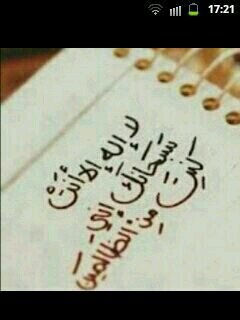 17:21
لا إله إلا أنت
سبحانك إني
كنت من الظالمين